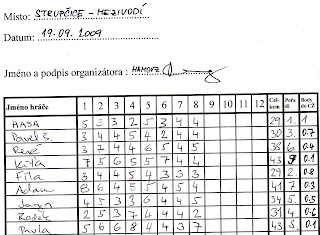 Místo: STRUPČICE - MEZIVODÍ
Datum: 19.09.2009
Jméno a podpis organizátora :
Jméno hráče 1 2 3 4 5 6 7 8 9 10 11 12 Cel-kem Pořadí Body do CZ
HASA 5 3 3 2 5 3 4 4 29 1. 1
Pavel S. 3 4 4 5 4 2 4 4 30 3. 0.7
René 3 7 4 4 6 5 4 5 38 6. 0.4
Kita 7 5 6 5 5 7 4 4 43 9 0.1
Fíla 3 4 4 5 4 3 3 3 29 2. 0.8
Adam 8 6 4 5 5 4 5 4 41 7. 0.3
4 5 3 3 6 4 4 5 34 5. 0.5
Radek 2 5 3 7 4 4 4 2 31 4. 0.6
Pavla 5 6 6 8 4 4 3 7 43 8. 0.1